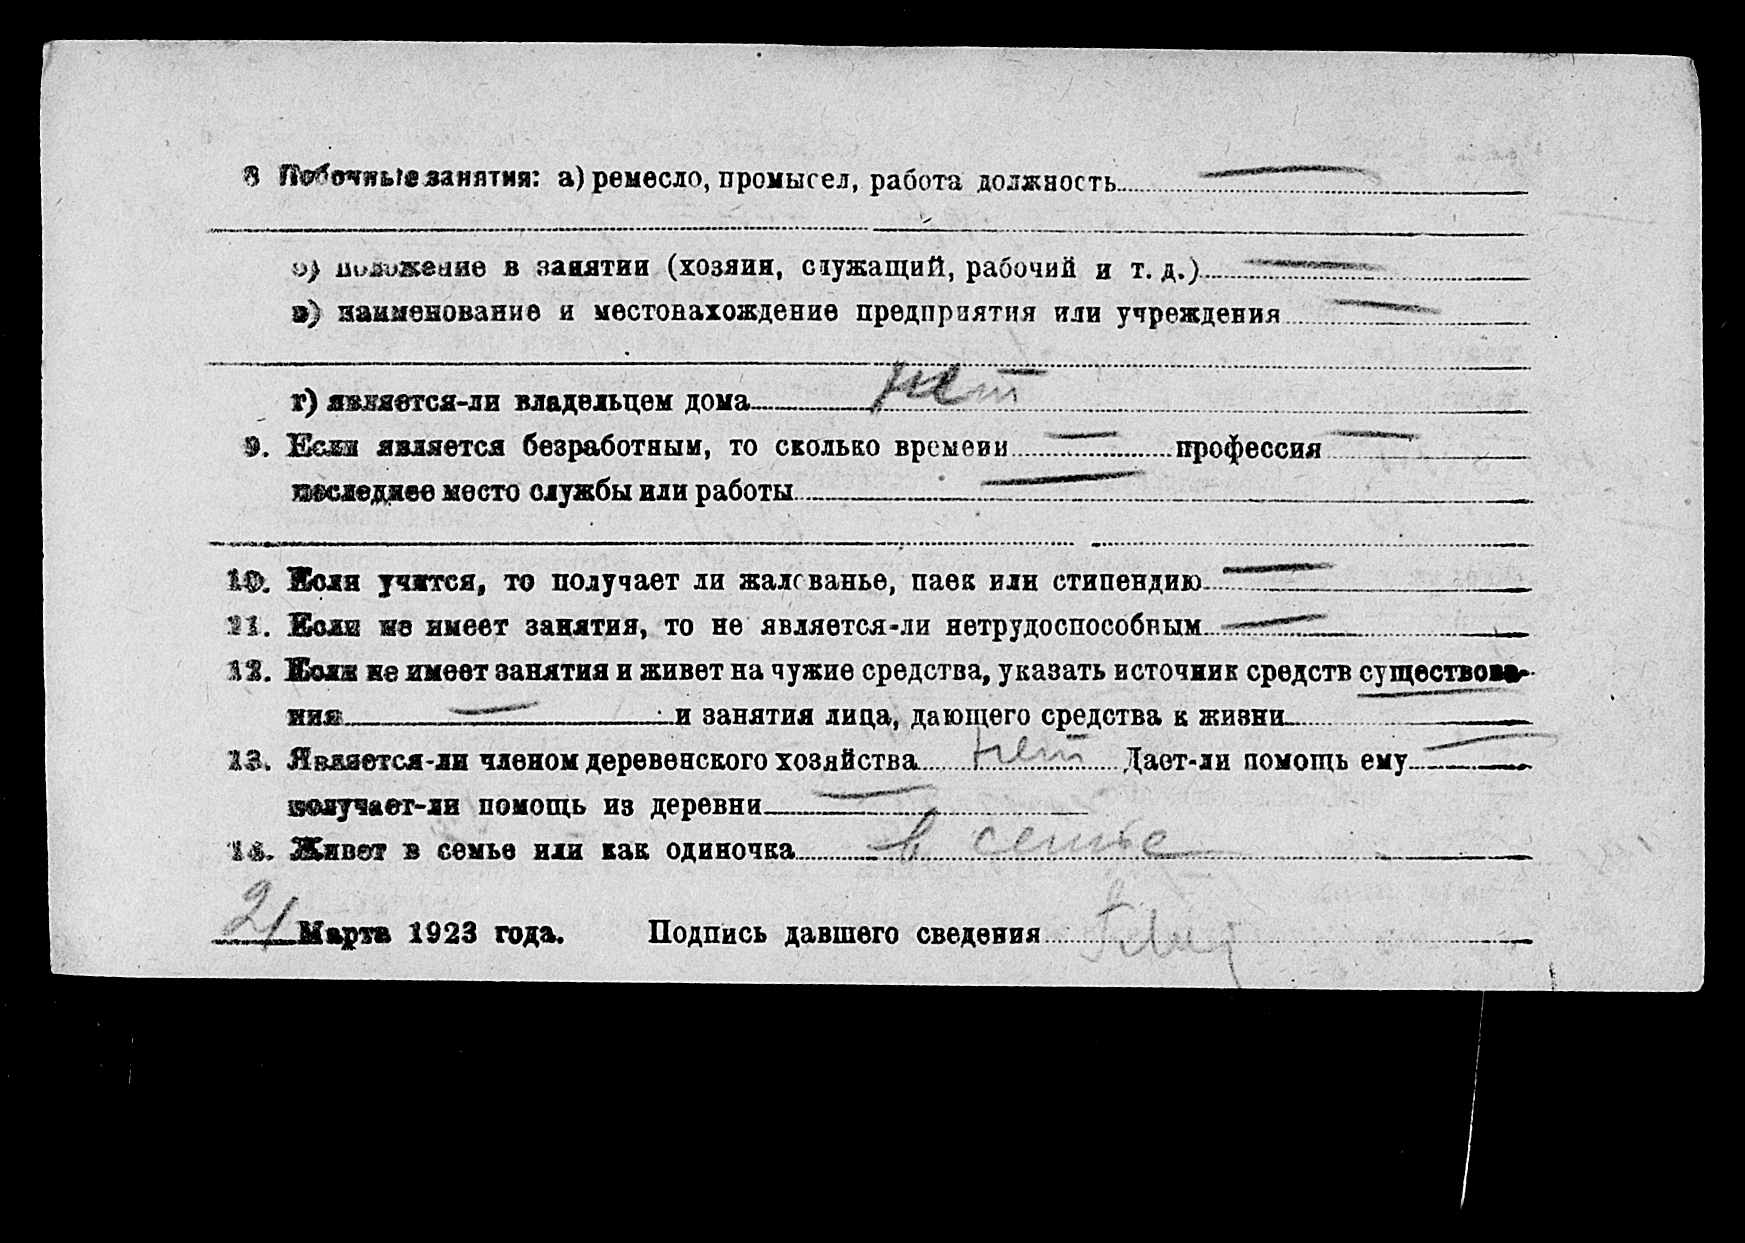 8 Побочные занятия: а) ремесло, промысел, работа должность — 
б) положение в занятии (хозяин, служащий, рабочий и т. д.) —
в) наименование и местонахождение предприятия или учреждения —
г) является-ли владельцем дома нет
9. Если является безработным, то сколько времени — профессия —
последнее место службы или работы —
10. Если учится, то получает ли жалованье, паек или стипендию —
11. Если не имеет занятия, то не является-ли нетрудоспособным —
12. Если не имеет занятия и живет на чужие средства, указать источник средств существова-
ния — и занятия лица, дающего средства к жизни
13. Является-ли членом деревенского хозяйства нет Дает-ли помощь ему —
получает-ли помощь из деревни —
14. Живет в семье или как одиночка в семье
21 Марта 1923 года. Подпись давшего сведения